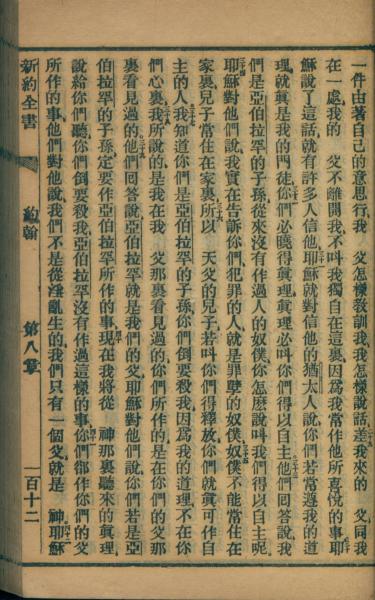 一件由著自己的意思行我　父怎樣教訓我我怎樣說話差我來的　父同我
在一處我的　父不離開我不叫我獨自在這裏因爲我常作他所喜悅的事耶
穌說了這話就有許多人信他耶穌就對信他的猶太人說你們若常遵我的道
理就眞是我的門徒你們必曉得眞理眞理必叫你們得以自主他們回答說我
們是亞伯拉罕的子孫從來沒有作過人的奴僕你怎麽說叫我們得以自主呢
耶穌對他們說我實在告訴你們犯罪的人就是罪孽的奴僕奴僕不能常住在
家裏兒子常住在家裏所以　天父的兒子若叫你們得釋放你們就眞可作自
主的人我知道你們是亞伯拉罕的子孫你們倒要殺我因爲我的道理不在你
們心裏我所說的是我在我　父那裏看見過的你們所作的是在你們的父那
裏看見過的他們回答說亞伯拉罕就是我們的父耶穌對他們說你們若是亞
伯拉罕的子孫定要作亞伯拉罕所作的事現在我將從　神那裏聽來的眞理
說給你們聽你們倒要殺我亞伯拉罕沒有作過這樣的事你們都作你們的父
所作的事他們對他說我們不是從淫亂生的我們只有一個父就是　神耶穌
新約全書　約翰　第八章　一百十二